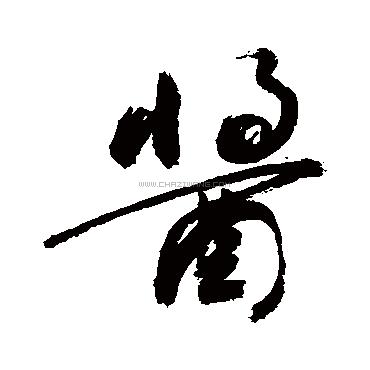 醬
WWW.CHAZIWANG.COM